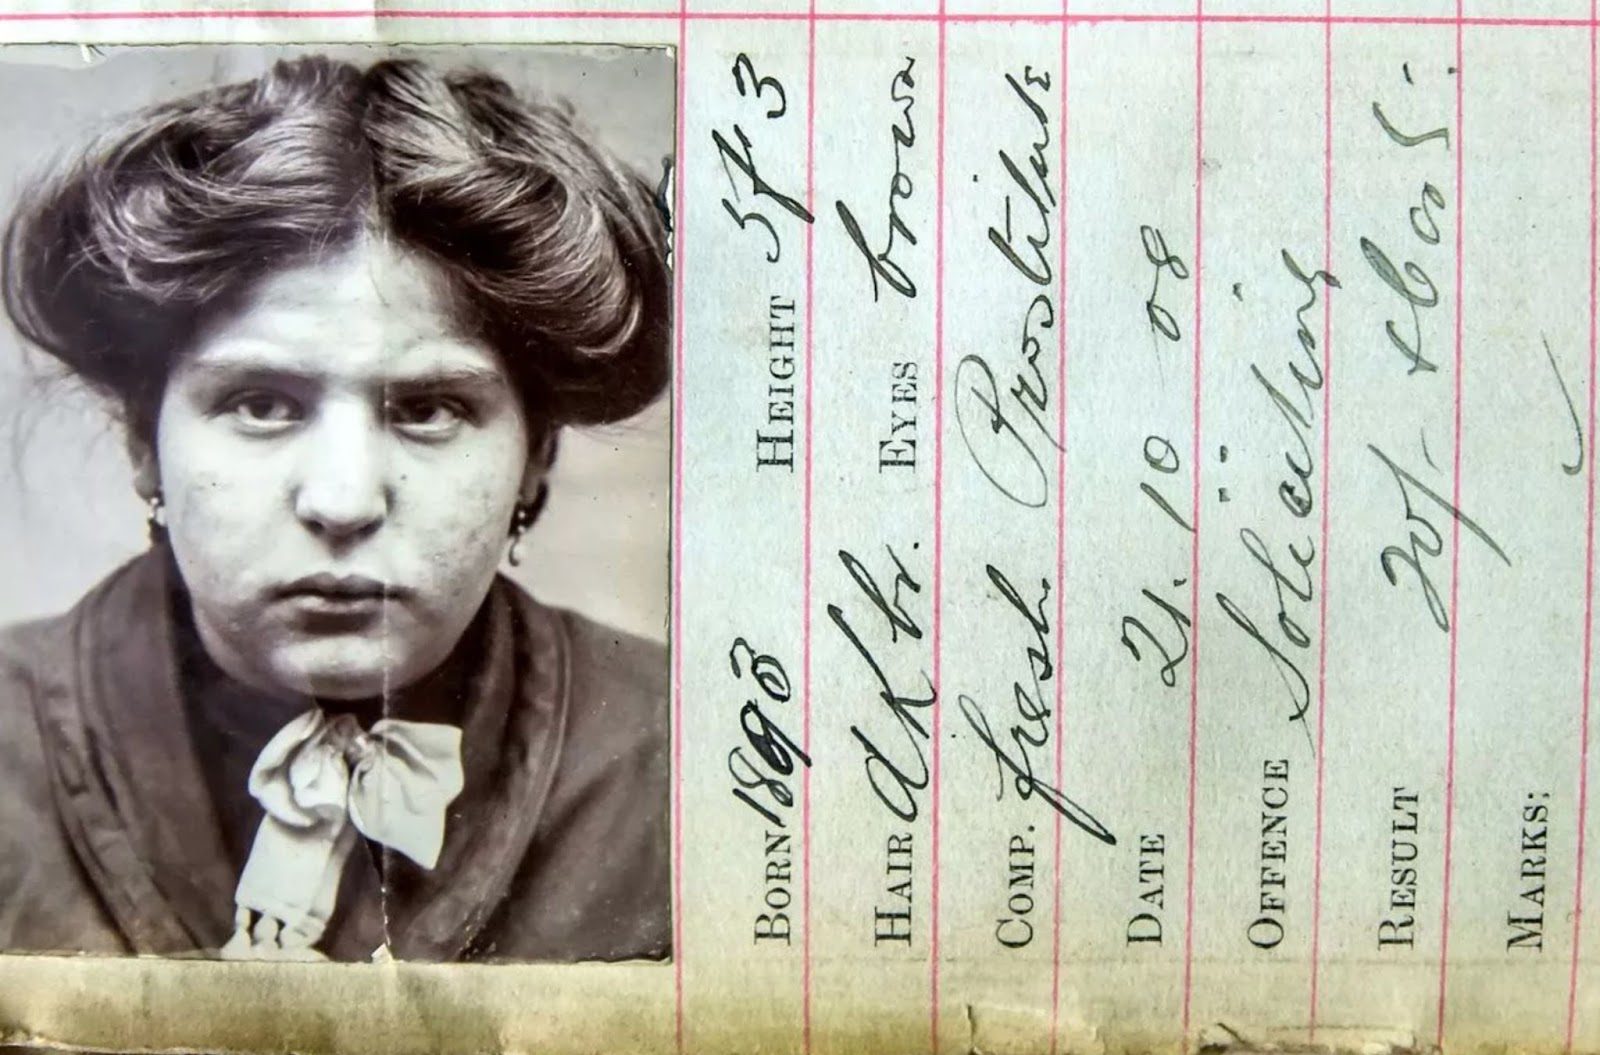 BORN 1893 HEIGHT 5f 3
HAIR dk br. EYES brown
COMP. fresh Prostitute
DATE 21. 10 08
OFFENCE Soliciting
RESULT
MARKS: